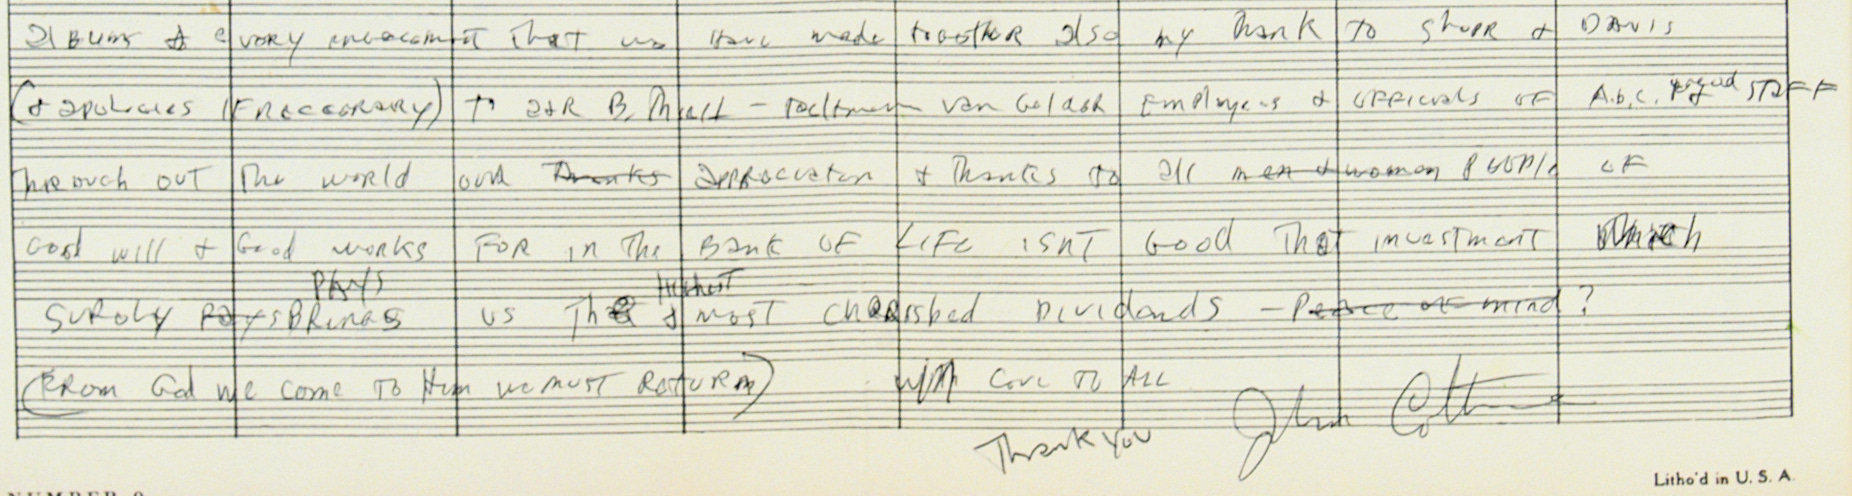 albums & every engagement that we have made together also my thank to Shepp & Davis
(& apologies if neccerary) to ear B. Thiell - recltmen van Geldar Employees & officials of A.b.c. good STAFF
Through out The world our Thanks appreciaton & Thanks to all men & women People of
Good will & Good works FOR in The Bank OF LIFE ISNT Good That investment Which
PAYS HigheST
SURely paysBRings us The & most cherished Dividends - Peace of mind?
(FROM God we come To Him we must Return) With Love TO ALL
Thank you John Coltrane
NUMBER 9
Litho'd in U. S. A.